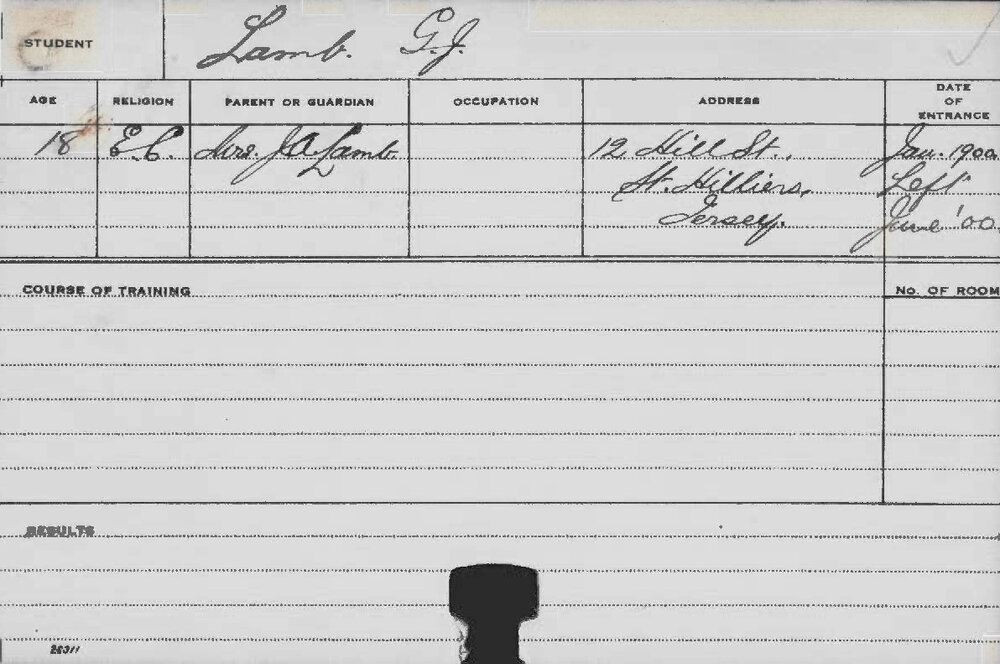 STUDENT Lamb. G.J.
AGE RELIGION PARENT OR GUARDIAN OCCUPATION ADDRESS DATE OF ENTRANCE
18 E.C. Mrs. J A Lamb. 12 Hill St., Jan. 1900.
St. Hilliers, Left
Jersey. June '00.
COURSE OF TRAINING No. OF ROOM
RESULTS